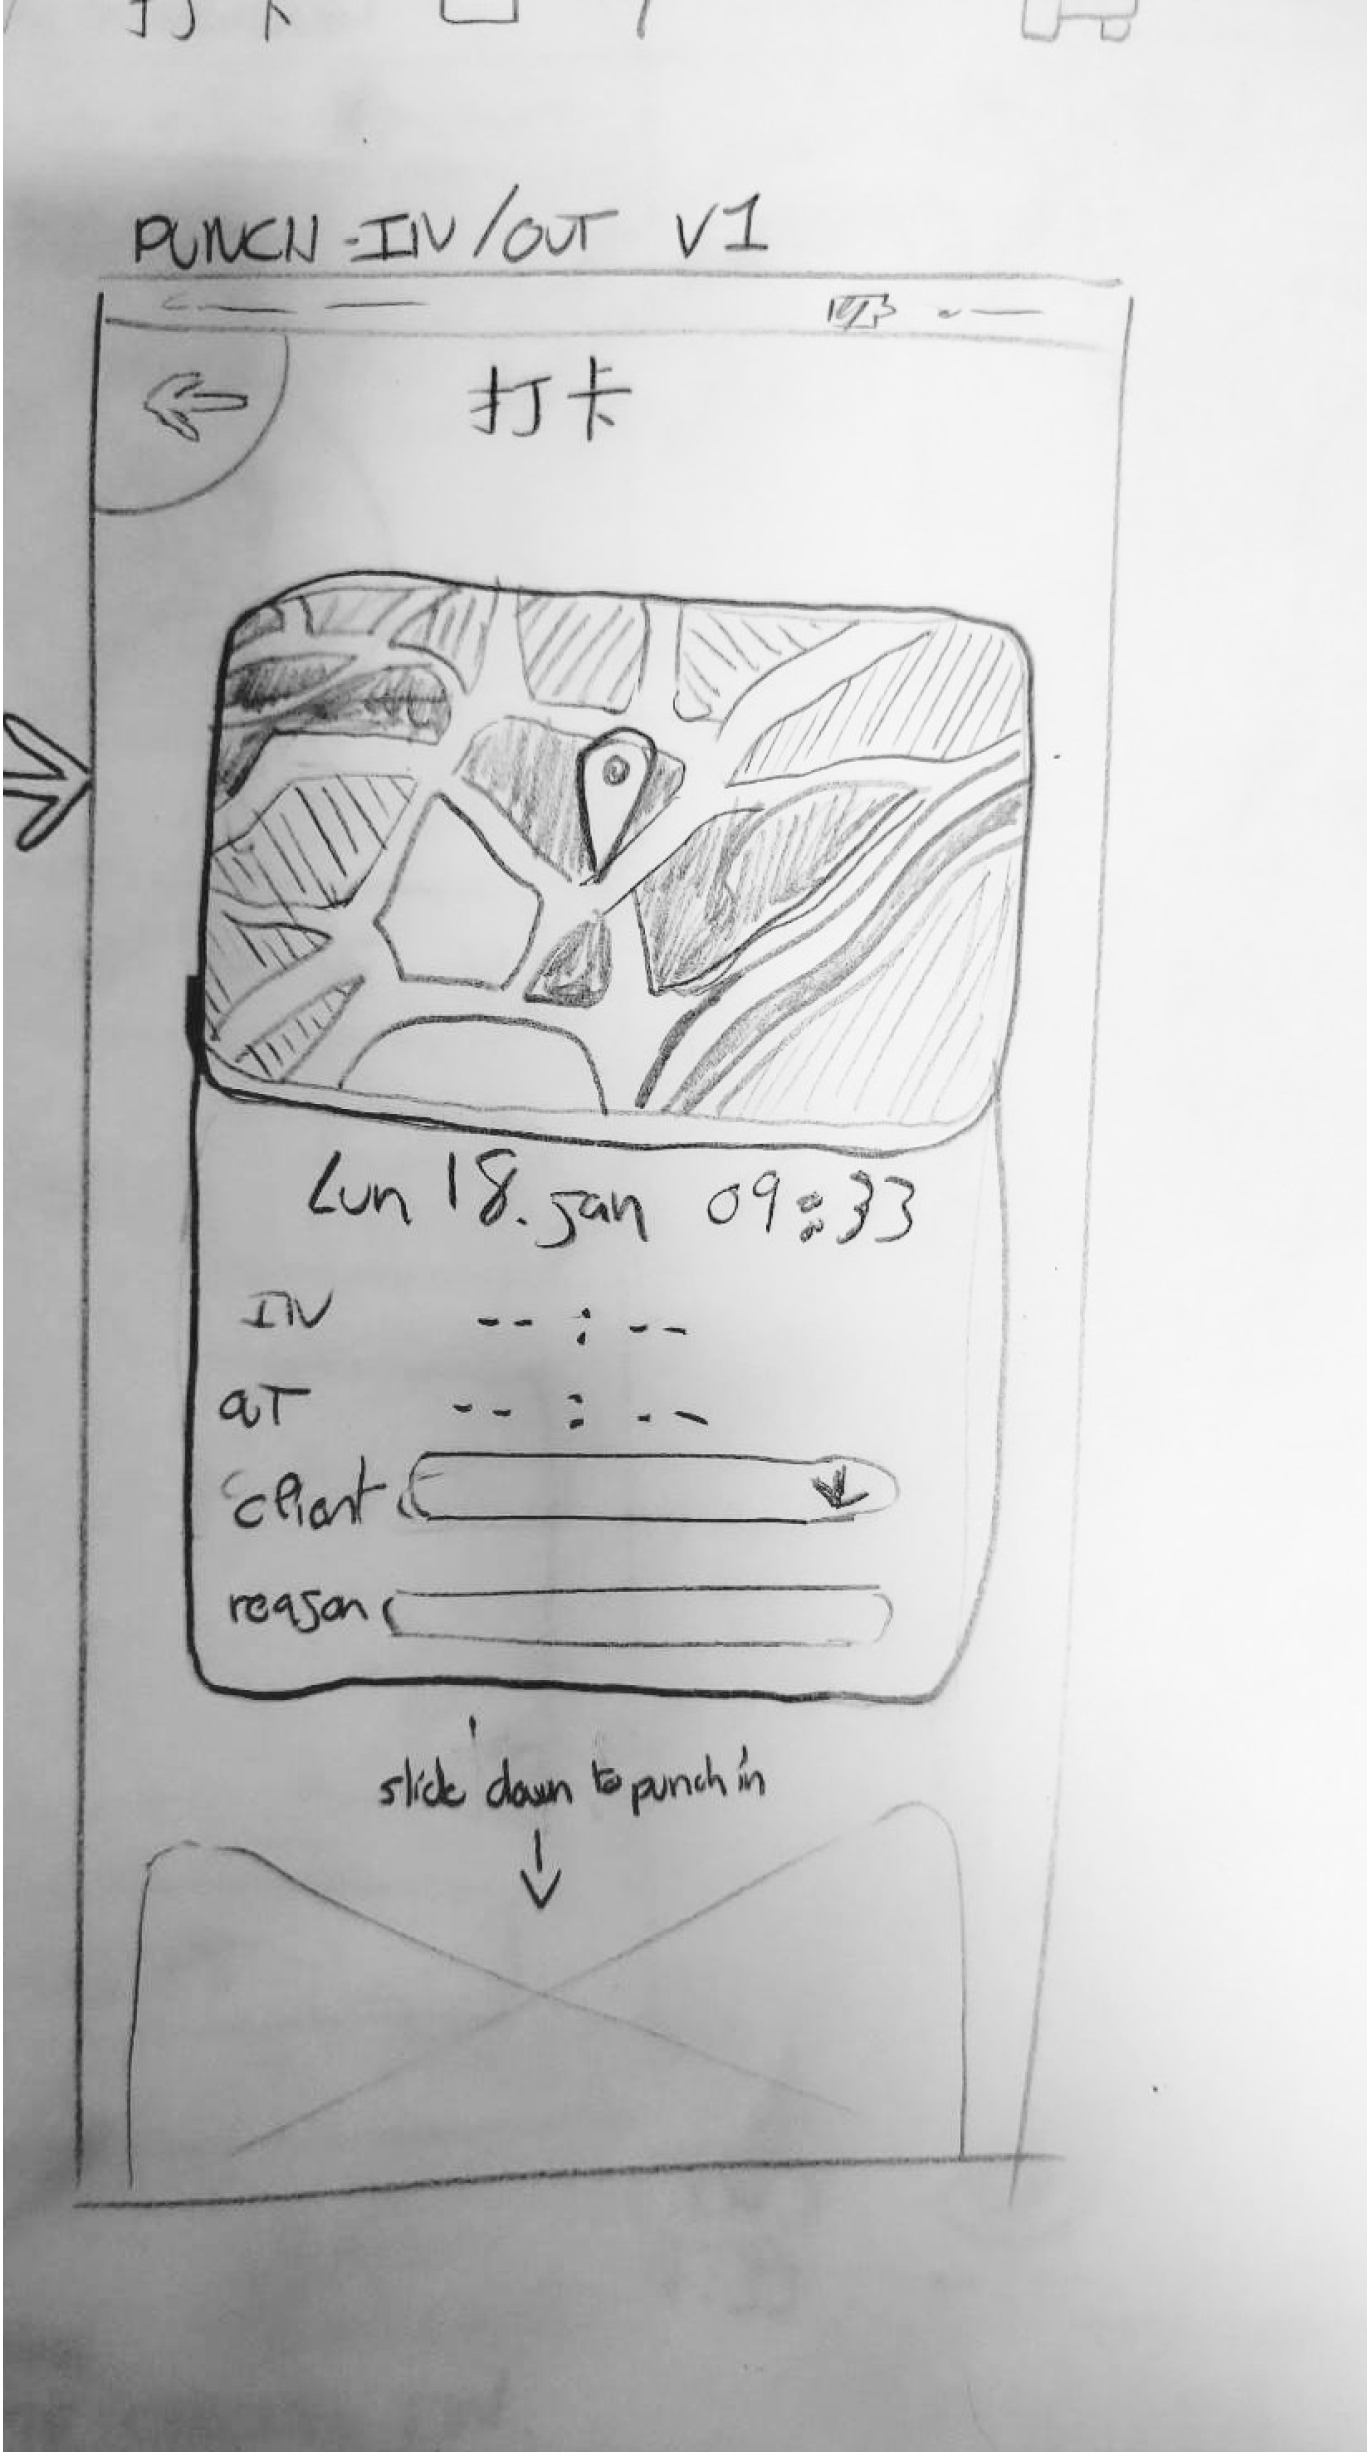 打卡
PUNCH-IN/OUT V1
打卡
Lun 18. Jan 09:33
IN --:--
OUT --:--
client
reason
slide down to punch in